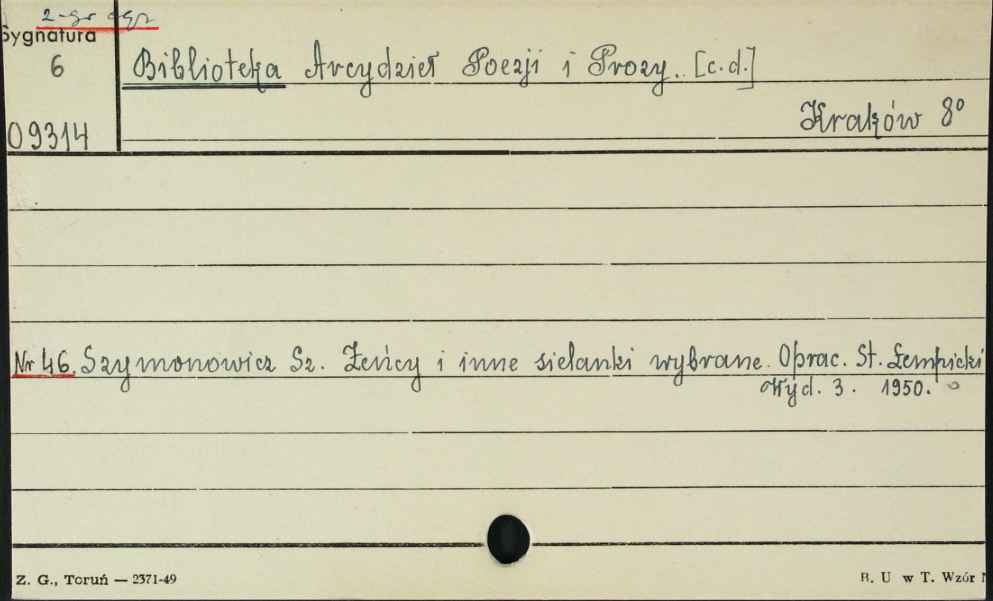 2-gi egz
Sygnatura
6
09314
Biblioteka Arcydzieł Poezji i Prozy. [c.d.]
Kraków 8°
Nr 46. Szymonowicz Sz. Żeńcy i inne sielanki wybrane. Oprac. St. Łempicki
Wyd. 3. 1950.
Z. G., Toruń — 2371-49
B. U w T. Wzór